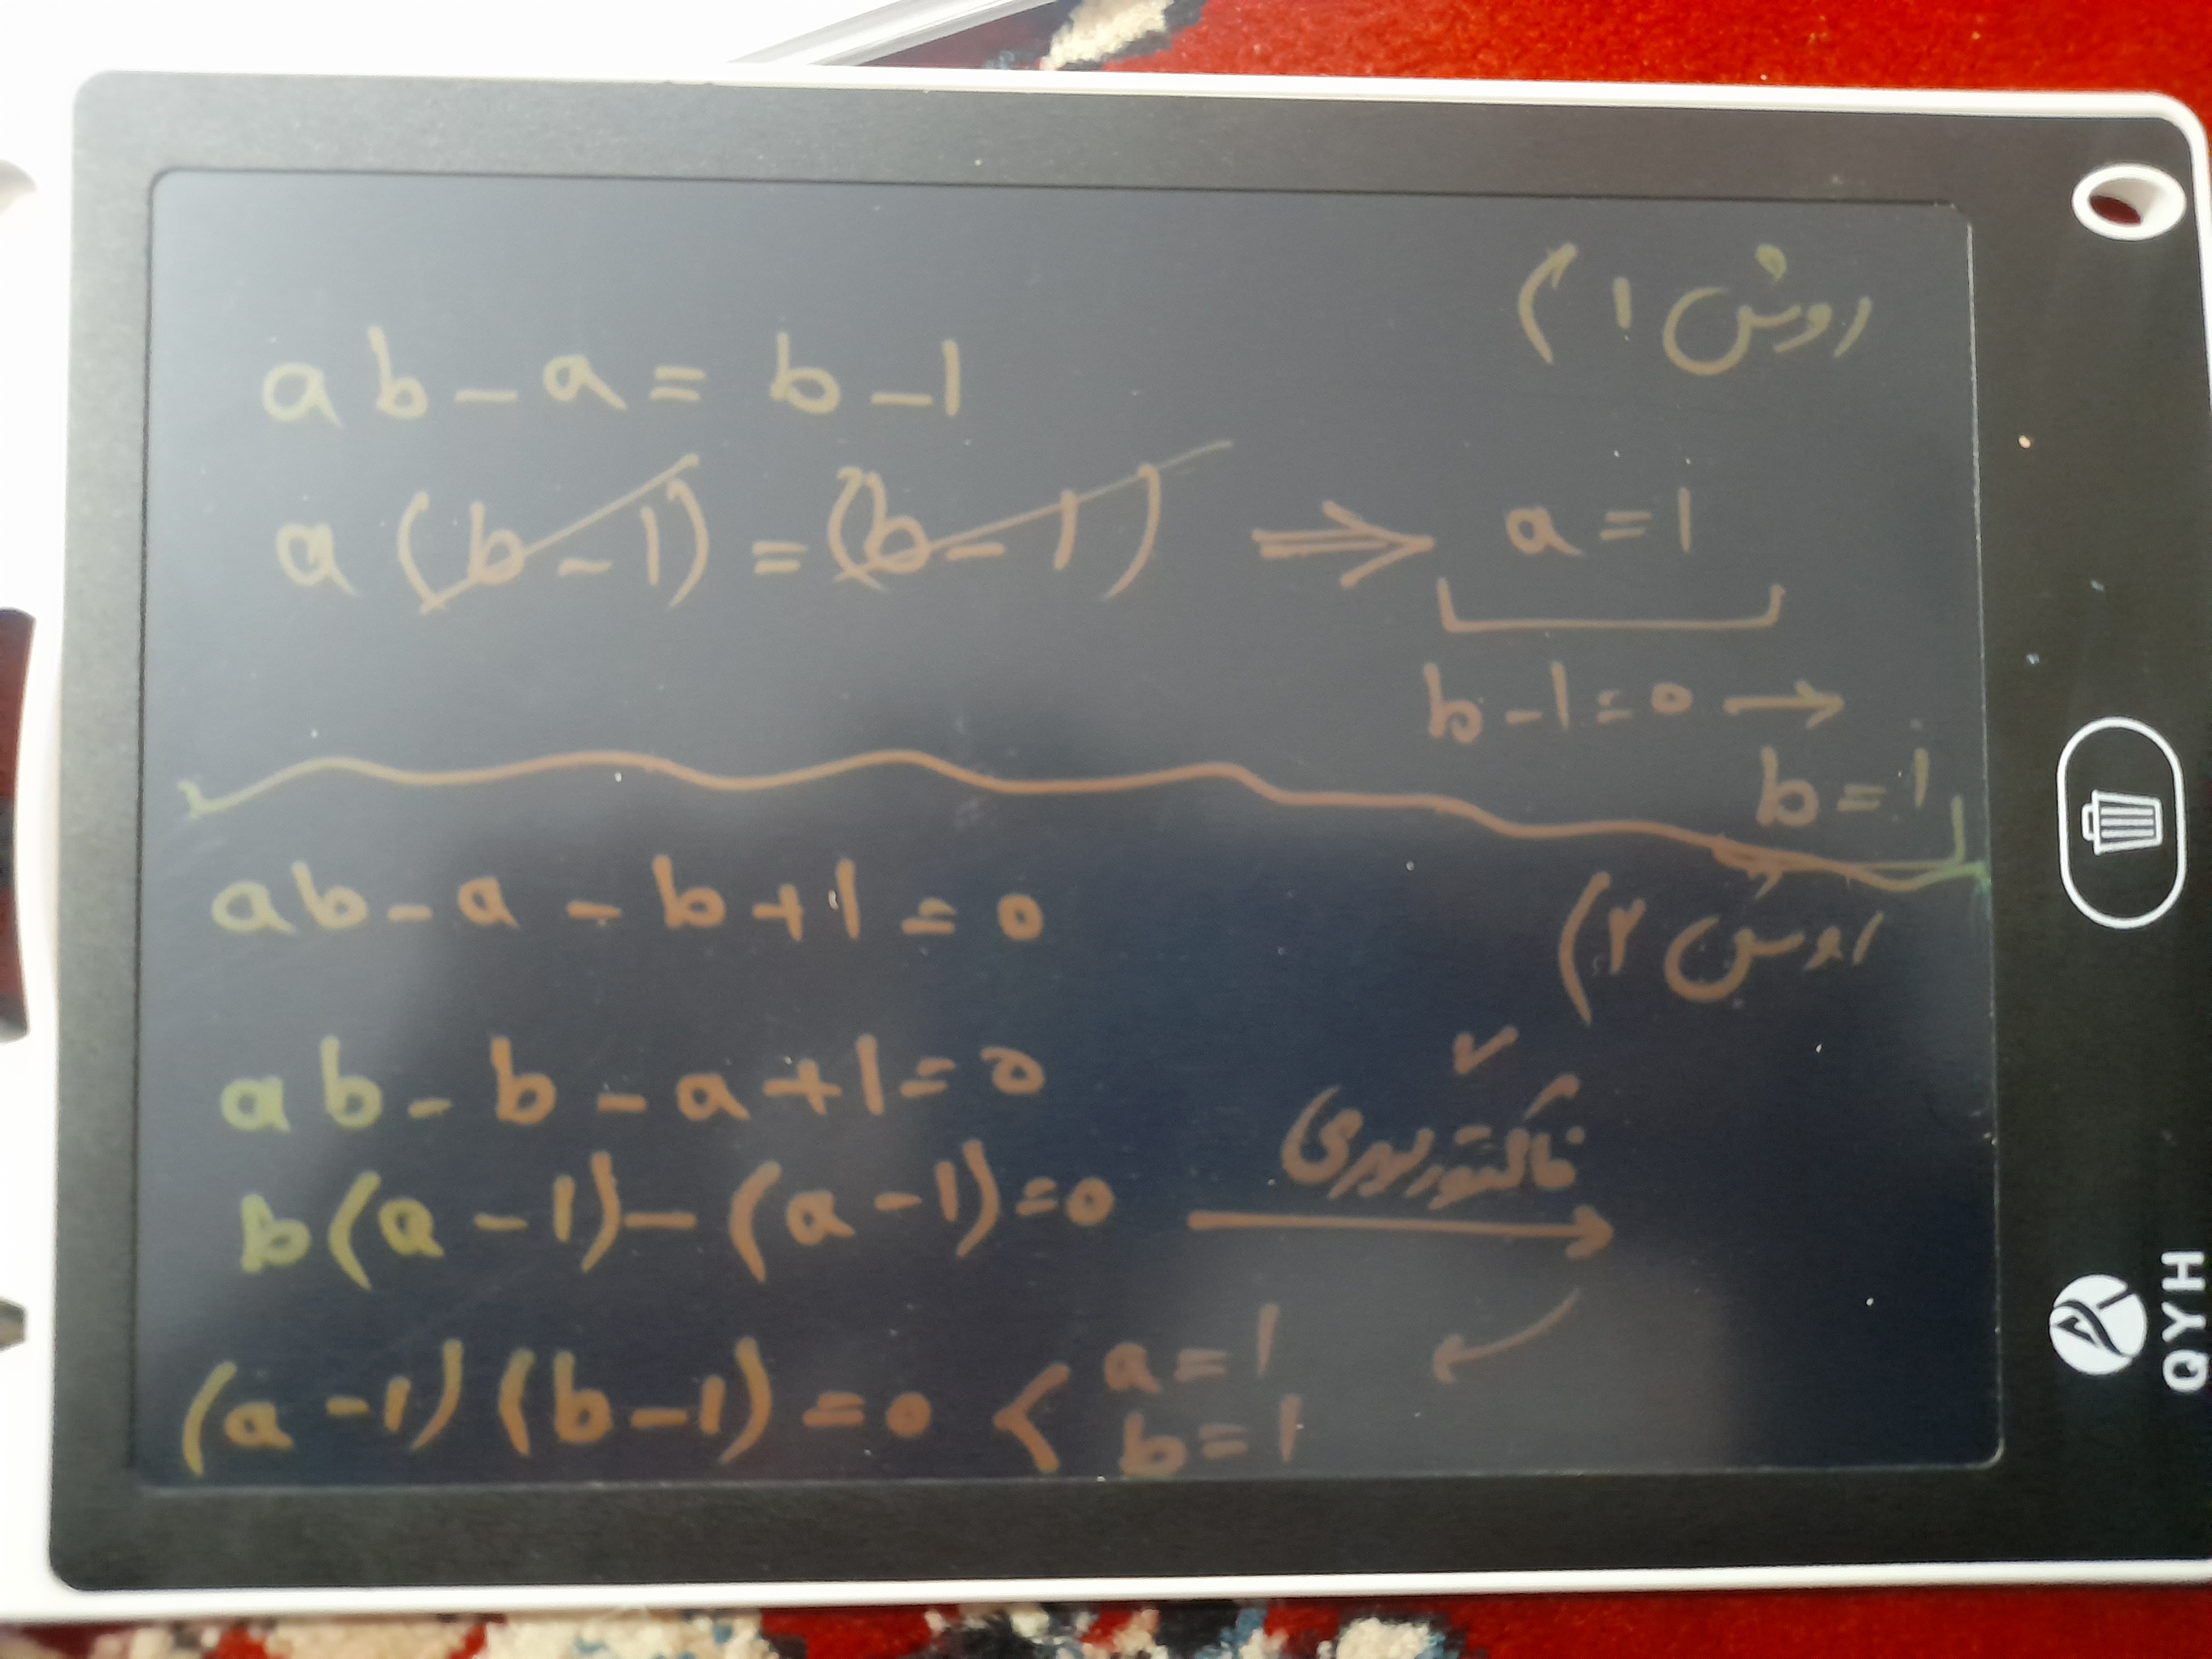 روش ۱)
ab - a = b - 1
a (b - 1) = (b - 1) ⇒ a = 1
b - 1 = 0 →
b = 1
روش ۲)
ab - a - b + 1 = 0
ab - b - a + 1 = 0
b (a - 1) - (a - 1) = 0 فاکتورگیری →
(a - 1) (b - 1) = 0 < a = 1
b = 1
QYH